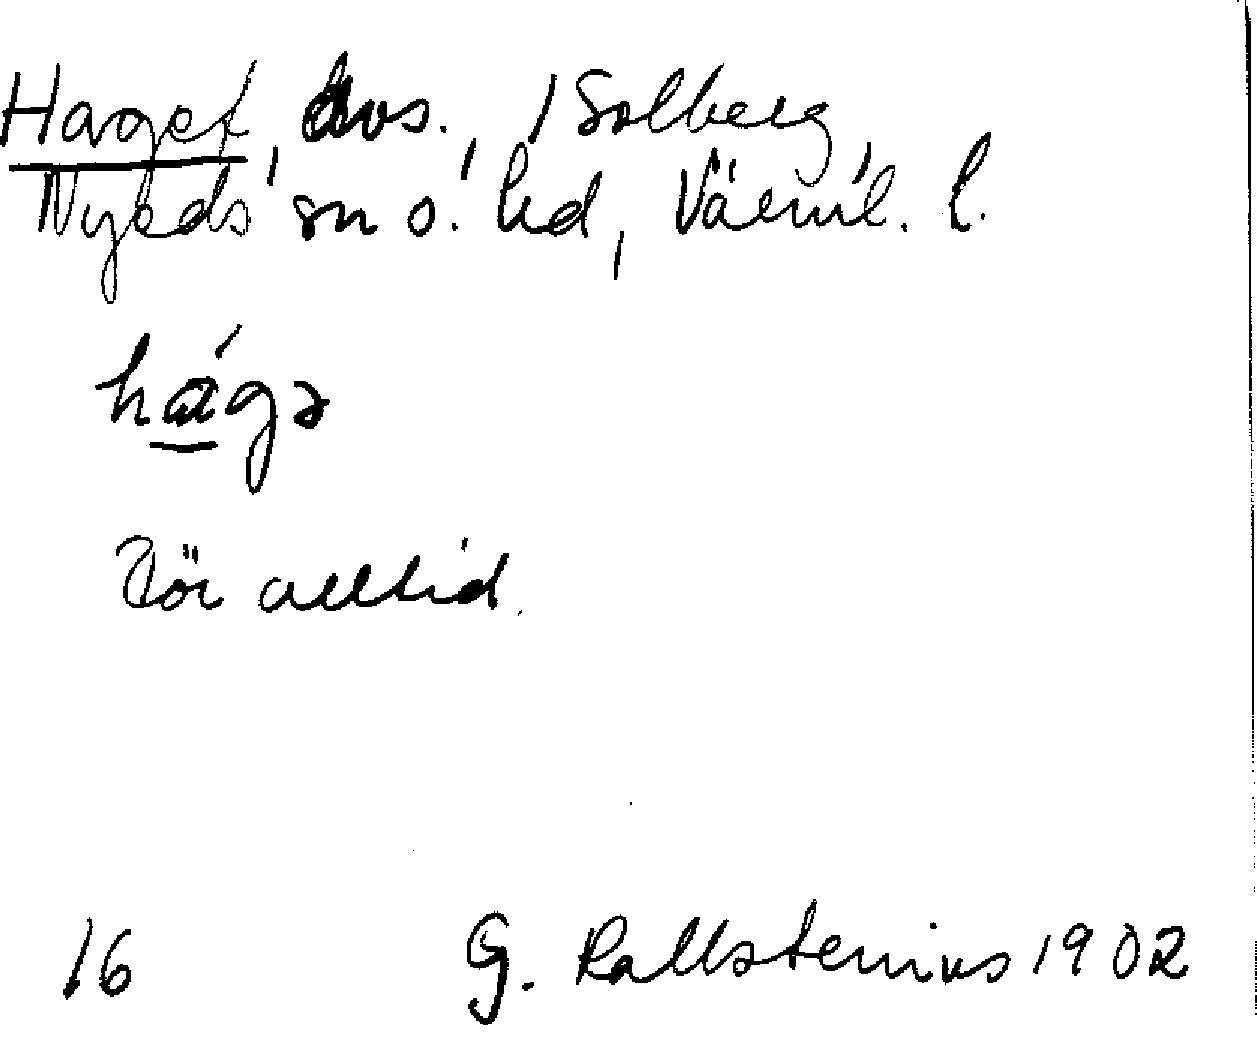 Haget, avs., 1 Solberg
Nyeds sn o. hd, Värml. l.
hágə
Bör alltid.
16 G. Kallstenius 1902